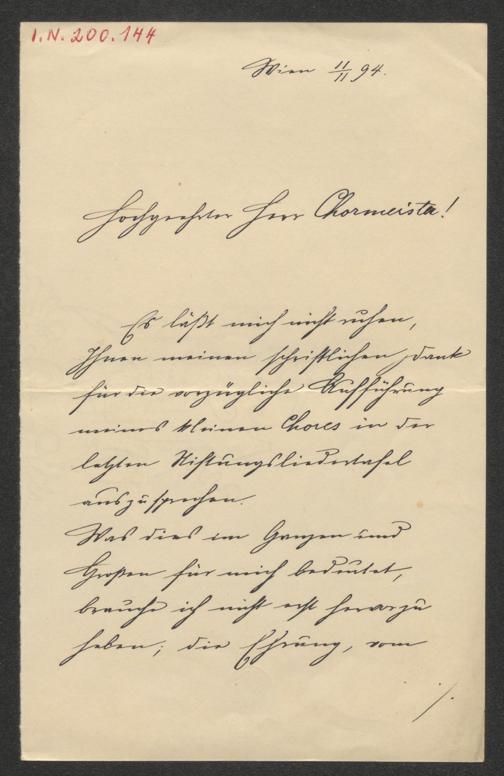 I.N. 200.144
Wien 11/11 94.
Hochgeehrter Herr Chormeister!
Es läßt mich nicht ruhen,
Ihnen meinen schriftlichen Dank
für die vorzügliche Aufführung
meines kleinen Chores in der
letzten Stiftungsliedertafel
auszusprechen.
Was dies im Ganzen und
Großen für mich bedeutet,
brauche ich nicht erst hervorzu
heben; die Ehrung, vom
./.